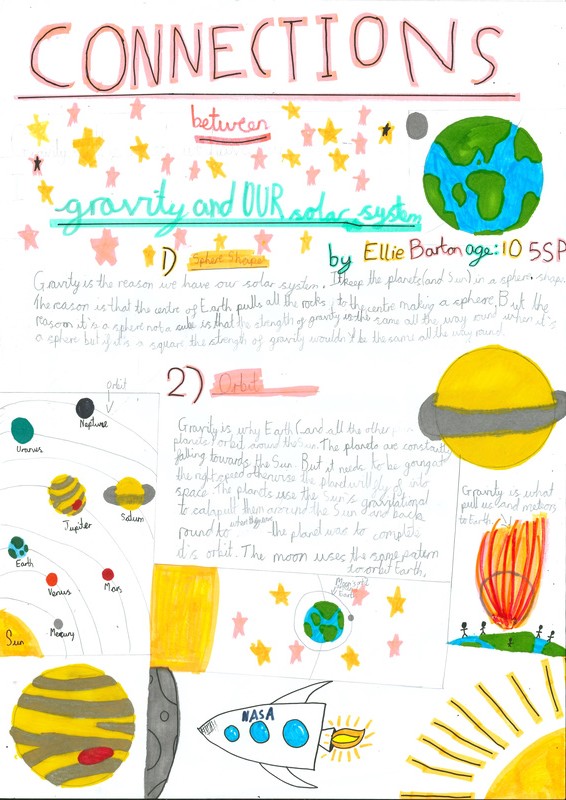 CONNECTIONS
between
gravity and OUR solar system
by Ellie Barton age: 10 5SP
1) Sphere Shape
Gravity is the reason we have our solar system. It keep the planets (and Sun) in a sphere shape.
The reason is that the centre of Earth pulls all the rocks, to the centre making a sphere. But the
reason it's a sphere not a cube is that the strength of gravity is the same all the way round when it's
a sphere but if it's a square the strength of gravity wouldn't be the same all the way round.
2) Orbit
Gravity is why Earth (and all the other
planets) orbit around the Sun. The planets are constantly
falling towards the Sun. But it needs to be going at
the right speed otherwise the planet will fly of into
space. The planets use the Sun's gravitational
to catapult them around the Sun and back
round to where the planet was to complete
it's orbit. The moon uses the same patern
to orbit Earth.
orbit
Neptune
Uranus
Jupiter
Saturn
Earth
Venus
Mars
Mercury
Sun
Moon's orbit
Earth
Gravity is what
pull us and meteors
to Earth
NASA